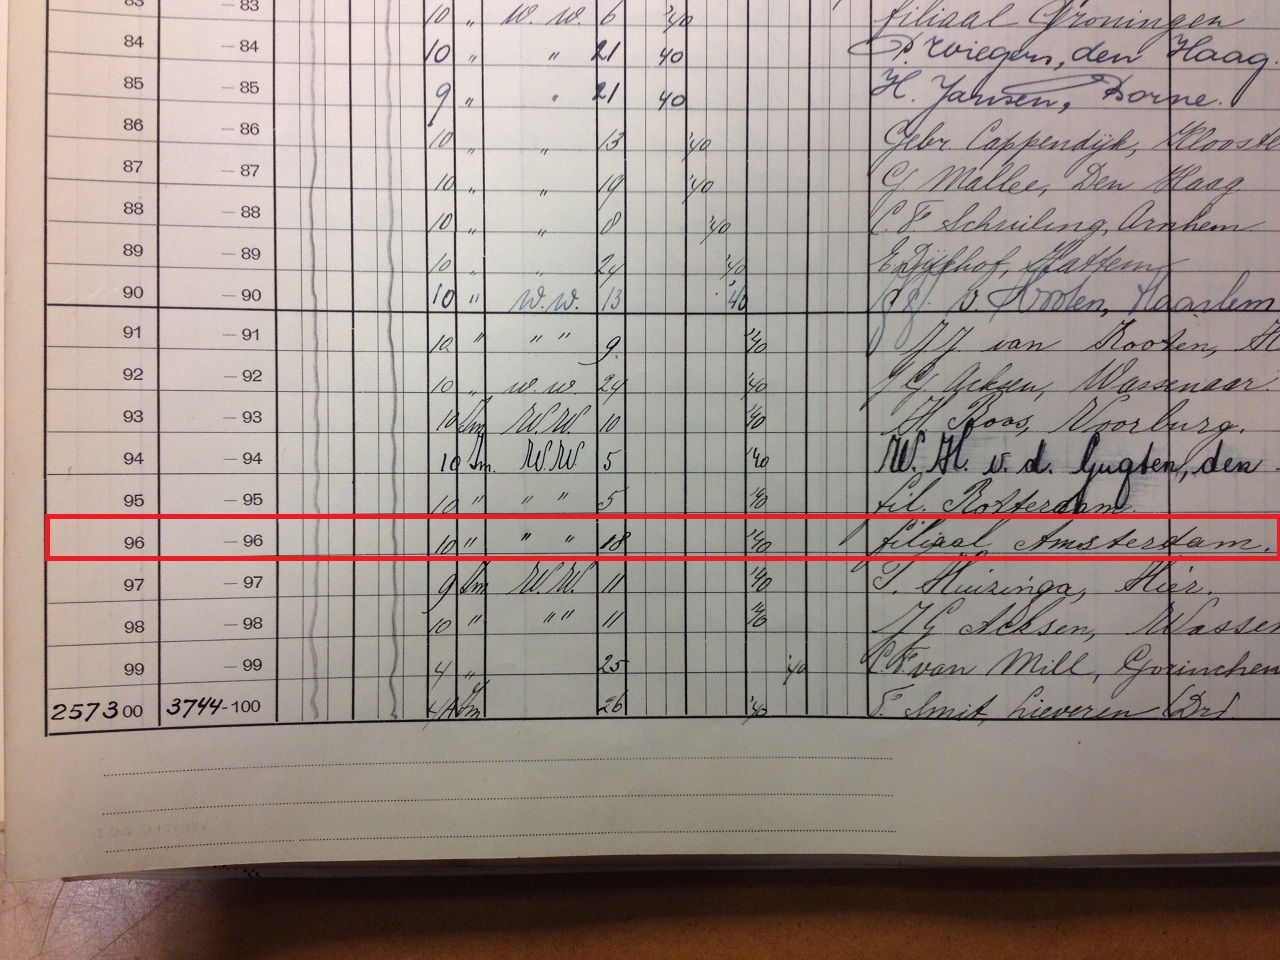 83 -83 10 " W. W. 6 '40 filiaal Groningen
84 -84 10 " " 21 40 P. Wiegers, den Haag.
85 -85 9 " " 21 40 H. Jansen, Borne.
86 -86 10 " " 13 '40 Gebr. Cappendijk, Klooste
87 -87 10 " " 19 '40 Mallee, Den Haag
88 -88 10 " " 8 '40 C. F. Schruiling, Arnhem
89 -89 10 " " 24 '40 Hattem,
90 -90 10 " W.W. 13 '40 v. Hooten, Haarlem
91 -91 10 " " " 9 '40 J J. van Rooten, H
92 -92 10 " W. W. 24 '40 J G Acksen, Wassenaar.
93 -93 10 Im W.W. 10 '40 H. Roos, Voorburg.
94 -94 10 Im. W.W 5 '40 W. H. v. d. Gugten, den
95 -95 10 " " " 5 '40 fil. Rotterdam.
96 -96 10 " " " 18 '40 filiaal Amsterdam.
97 -97 9 Im W.W. 11 '40 Huizinga, Hier.
98 -98 10 " " " 11 '40 J G Acksen, Wasse
99 -99 4 " 25 '40 C. F. van Mill, Gorinchem
257300 3744-100 Im 26 '40 F. Smit, Lieveren (Dr).